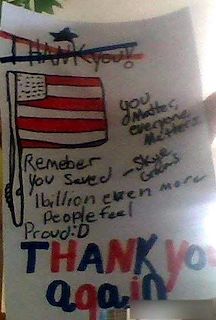 THANK you!
you
Matter,
everyone
Matters
Remeber
You Saved
1 billion even more
People feel
Proud :D
THANK yo
again